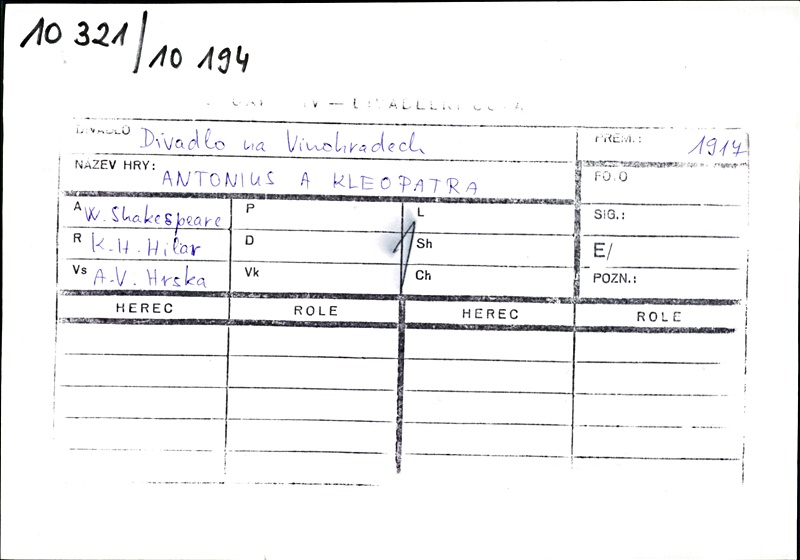 10 321/10 194
DIVADLO Divadlo na Vinohradech PREM.: 1917
NAZEV HRY: ANTONIUS A KLEOPATRA FO.O
A W. Shakespeare P L SIG.:
R K. H. Hilar D Sh E/
Vs A. V. Hrska Vk Ch POZN.:
HEREC ROLE HEREC ROLE